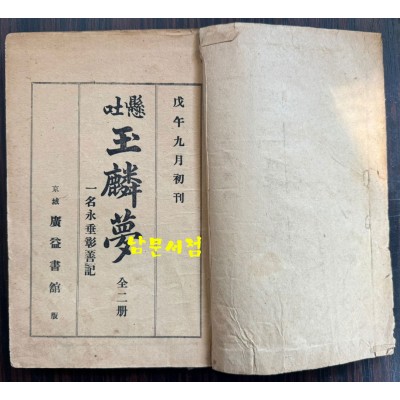 戊午九月初刊
懸吐
玉麟夢
全二冊
一名永垂彰善記
京城 廣益書館 版
남문서점